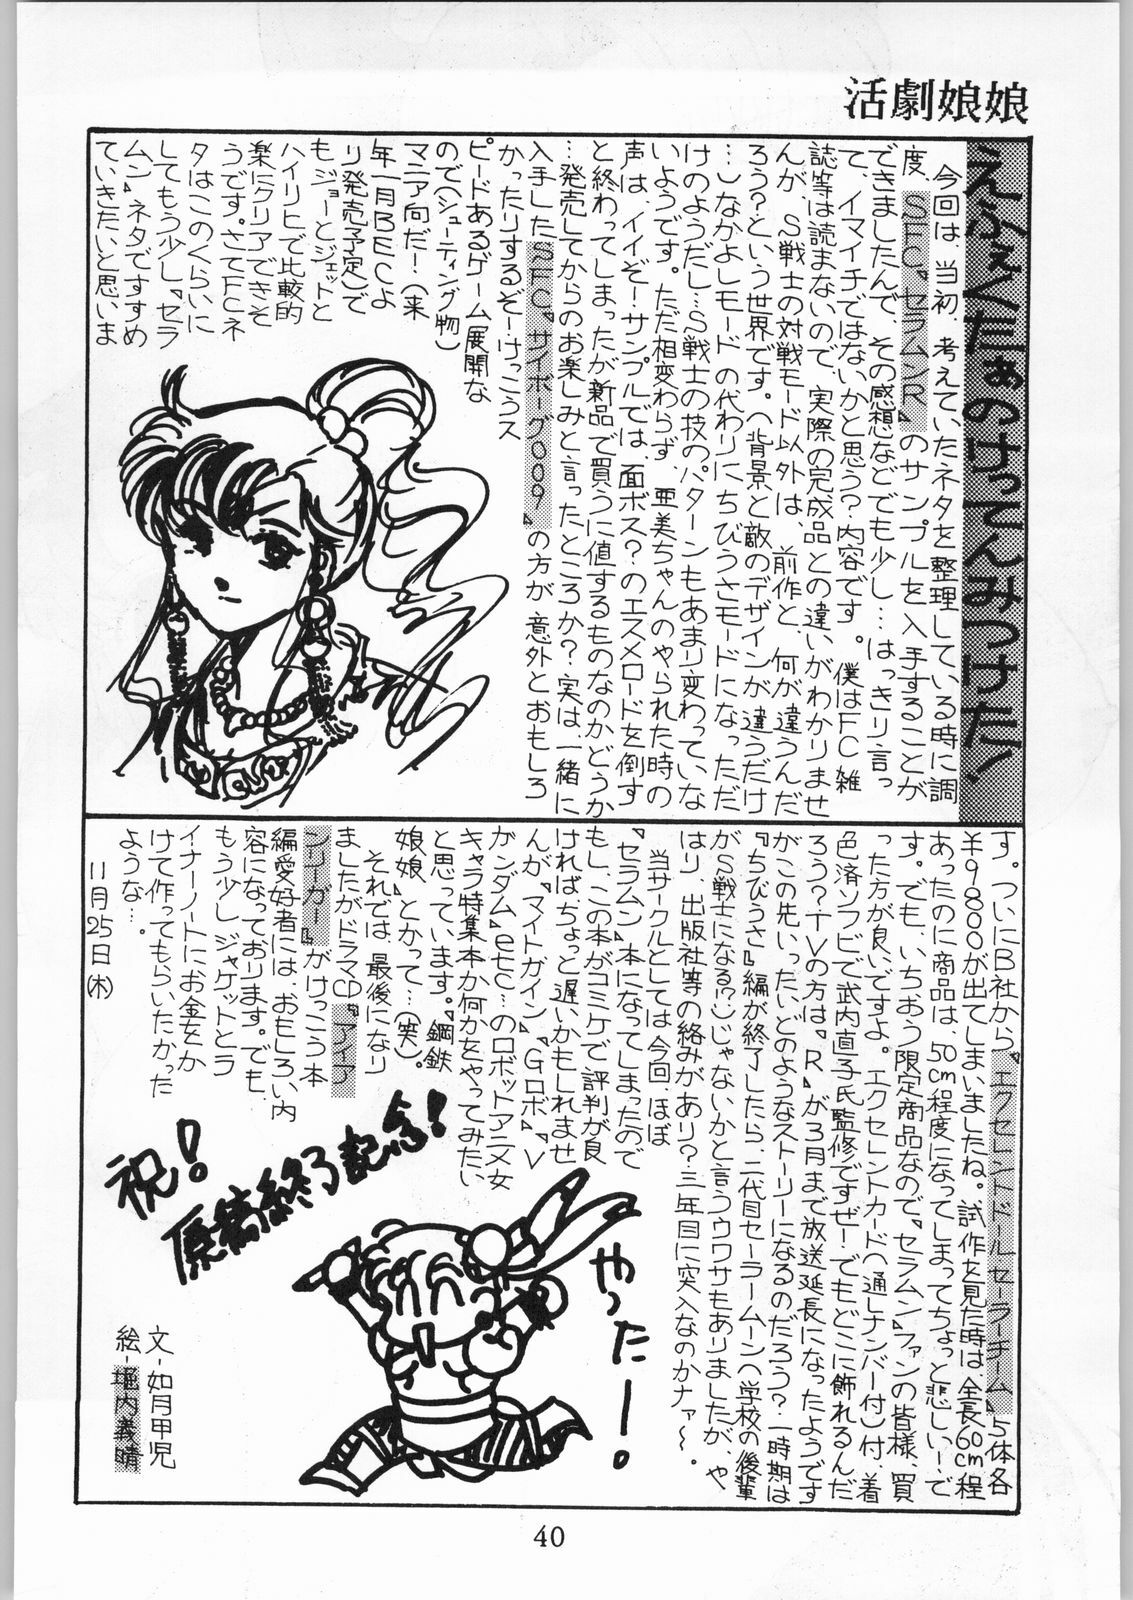 活劇娘娘
えふぇくたぁのけってんみつけた!
今回は、当初、考えていたネタを整理している時に調
度、SFC『セラムンR』のサンプルを入手することが
できましたんで、その感想などでも少し…はっきり言っ
て、イマイチではないかと思う?内容です。僕はFC雑
誌等は読まないので、実際の完成品との違いがわかりませ
んが、S戦士の対戦モード以外は、前作と、何が違うんだ
ろう?という世界です。(背景と敵のデザインが違うだけ
…)なかよしモードの代わりにちびうさモードになっただ
けのようだし…S戦士の技のパターンもあまり変わっていな
いようです。ただ相変わらず、亜美ちゃんのやられた時の
声は、イイぞ!サンプルでは、面ボス?のエスメロードを倒す
と終わってしまったが新品で買うに値するものなのかどうか
…発売してからのお楽しみと言ったところか?実は一緒に
入手したSFC『サイボーグ009』の方が意外とおもしろ
かったりするぞーけっこうス
ピードあるゲーム展開な
ので(シューティング物)
マニア向だ!(来
年一月BECよ
り発売予定)で
もジョーとジェットと
ハイリヒで比較的
楽にクリアできそ
うです。さてFCネ
タはこのくらいに
してもう少し『セラ
ムン』ネタですすめ
ていきたいと思いま
す。ついにB社から『エクセレントドールセーラーチーム』5体各
¥9800が出てしまいましたね。試作を見た時は、全長60cm程
あったのに商品は、50cm程度になってしまってちょっと悲しい…で
す。でも、いちおう限定商品なので、『セラムン』ファンの皆様、買
った方が良いですよ。エクセレントカード(通しナンバー付)付、着
色済ソフビで武内直子氏監修ですぜー。でもどこに飾れるんだ
ろう?TVの方は『R』が3月まで放送延長になったようです
がこの先いったいどのようなストーリーになるのだろう?一時期は
『ちびうさ』編が終了したら、二代目セーラームーン(学校の後輩
がS戦士になる?)じゃないかと言うウワサもありましたが、や
はり、出版社等の絡みがあり?三年目に突入なのかナァ〜。
当サークルとしては今回、ほぼ
『セラムン』本になってしまったので
もし、この本がコミケで評判が良
ければ、ちょっと遅いかもしれませ
んが、『マイトガイン』『Gロボ』『V
ガンダム』etc…のロボットアニメ女
キャラ特集本か何かをやってみたい
と思っています。『鋼鉄
娘娘』とかって…(笑)。
それでは、最後になり
ましたがドラマCD『アイア
ンリーガー』がけっこう本
編愛好者には、おもしろい内
容になっております。でも
もう少し、ジャケットとラ
イナーノートにお金をか
けて作ってもらいたかった
ような…。
11月25日(木)
祝!
原稿終了記念!
やったー!
文-如月甲児
絵-堀内義晴
40